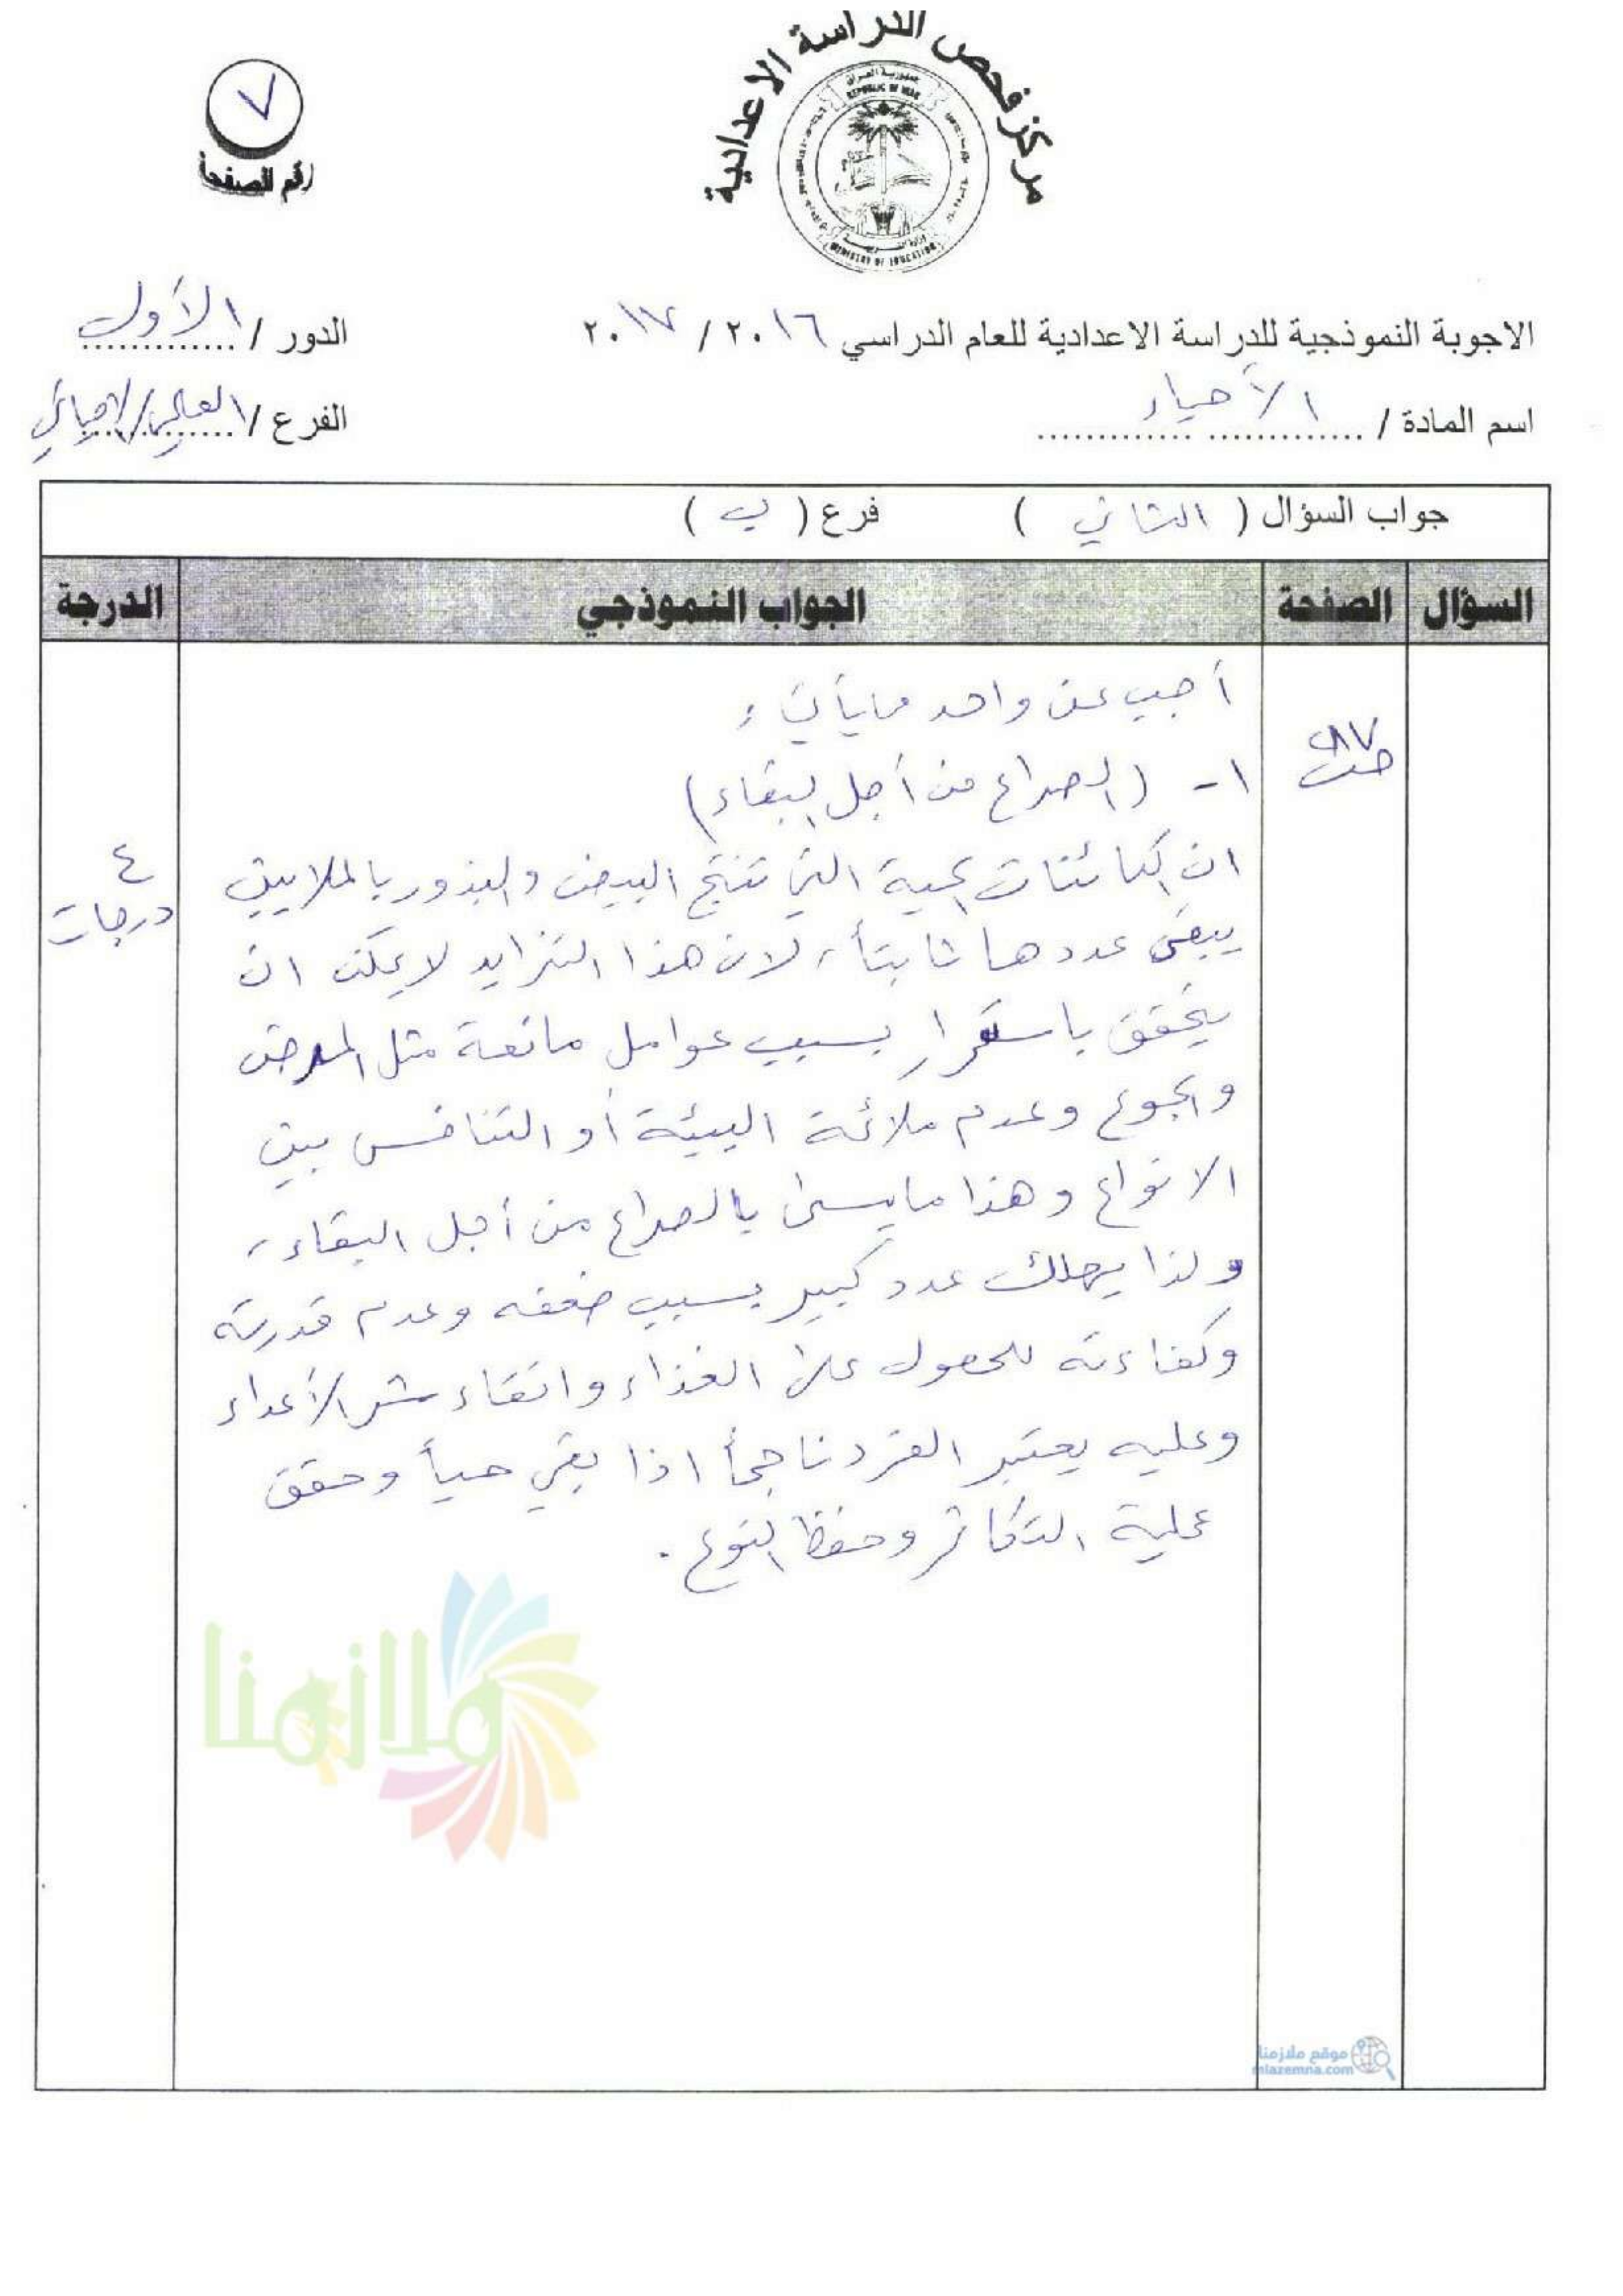 مركز فحص الدراسة الاعدادية
جمهورية العراق
REPUBLIC OF IRAQ
MINISTRY OF EDUCATION
٧
رقم الصفحة
الاجوبة النموذجية للدراسة الاعدادية للعام الدراسي ٢٠١٦ / ٢٠١٧
الدور / الأول
اسم المادة / الأحياء
الفرع / العلمي/الاحيائي
جواب السؤال ( الثاني ) فرع ( ب )
السؤال الصفحة الجواب النموذجي الدرجة
أجب عن واحد مما يأتي :
ص٢٨٧
١- (الصراع من أجل البقاء)
ان الكائنات الحية التي تنتج البيض والبذور بالملايين
٤ درجات
يبقى عددها ثابتاً ، لان هذا التزايد لا يمكن ان
يتحقق باستمرار بسبب عوامل مانعة مثل المرض
والجوع وعدم ملائمة البيئة أو التنافس بين
الانواع وهذا مايسمى بالصراع من أجل البقاء ،
ولذا يهلك عدد كبير بسبب ضعفه وعدم قدرته
وكفاءته للحصول على الغذاء واتقاء شر الأعداء
وعليه يعتبر الفرد ناجحاً اذا بقي حياً وحقق
عملية التكاثر وحفظ النوع .
ملازمنا
موقع ملازمنا
mlazemna.com